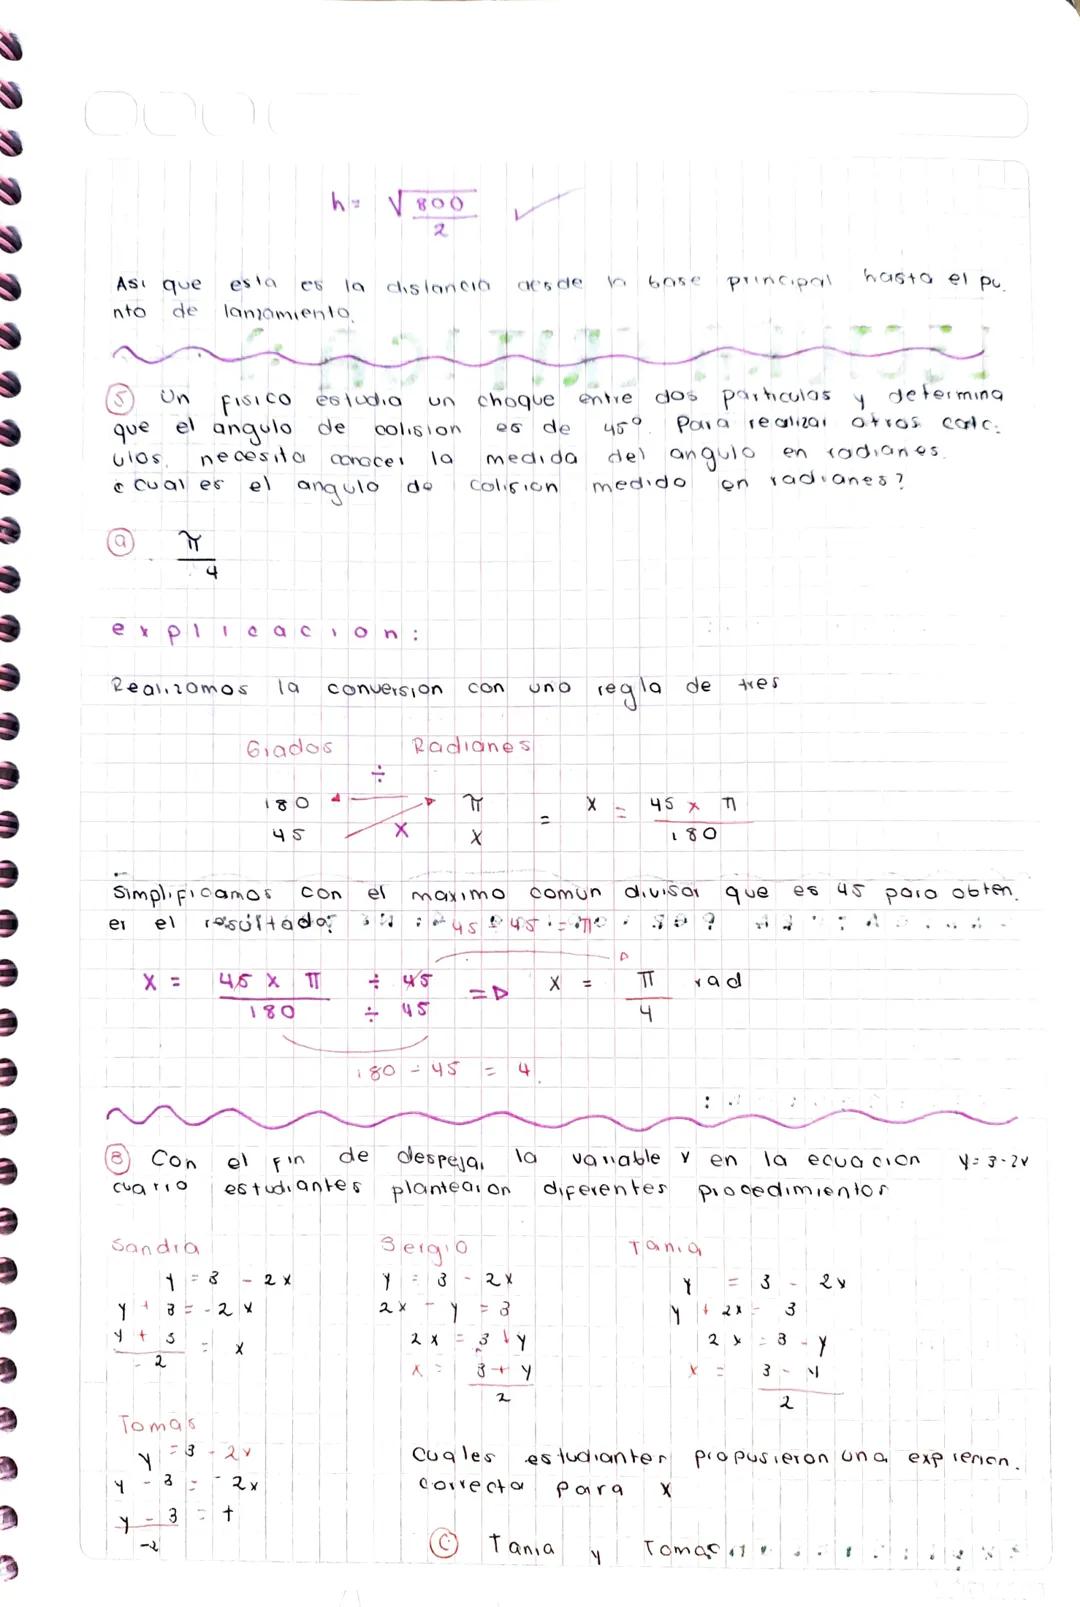 h = √800
2
Asi que esta es la distancia desde la base principal hasta el pu.
nto de lanzamiento.
5 Un fisico estudia un choque entre dos particulas y determina
que el angulo de colision es de 45º. Para realizar otros calc.
ulos, necesita conocer la medida del angulo en radianes.
¿cual es el angulo de colision medido en radianes?
a π
4
explicacion:
Realizamos la conversion con una regla de tres
Grados Radianes
÷
180 π = x = 45 x π
45 x x 180
Simplificamos con el maximo comun divisor que es 45 para obten.
er el resultado: 45 ÷ 45 = π
x = 45 x π ÷ 45 => x = π rad
180 ÷ 45 4
180 ÷ 45 = 4
8 Con el fin de despejar la variable x en la ecuacion y = 3 - 2x
cuatro estudiantes plantearon diferentes procedimientos
Sandra Sergio Tania
y = 3 - 2x y = 3 - 2x y = 3 - 2x
y + 3 = -2x 2x - y = 3 y + 2x = 3
y + 3 = x 2x = 3 + y 2x = 3 - y
-2 x = 3 + y x = 3 - y
2 2
Tomas
y = 3 - 2x
y - 3 = -2x
y - 3 = +
-2
Cuales estudiantes propusieron una expresion.
correcta para x
C Tania y Tomas